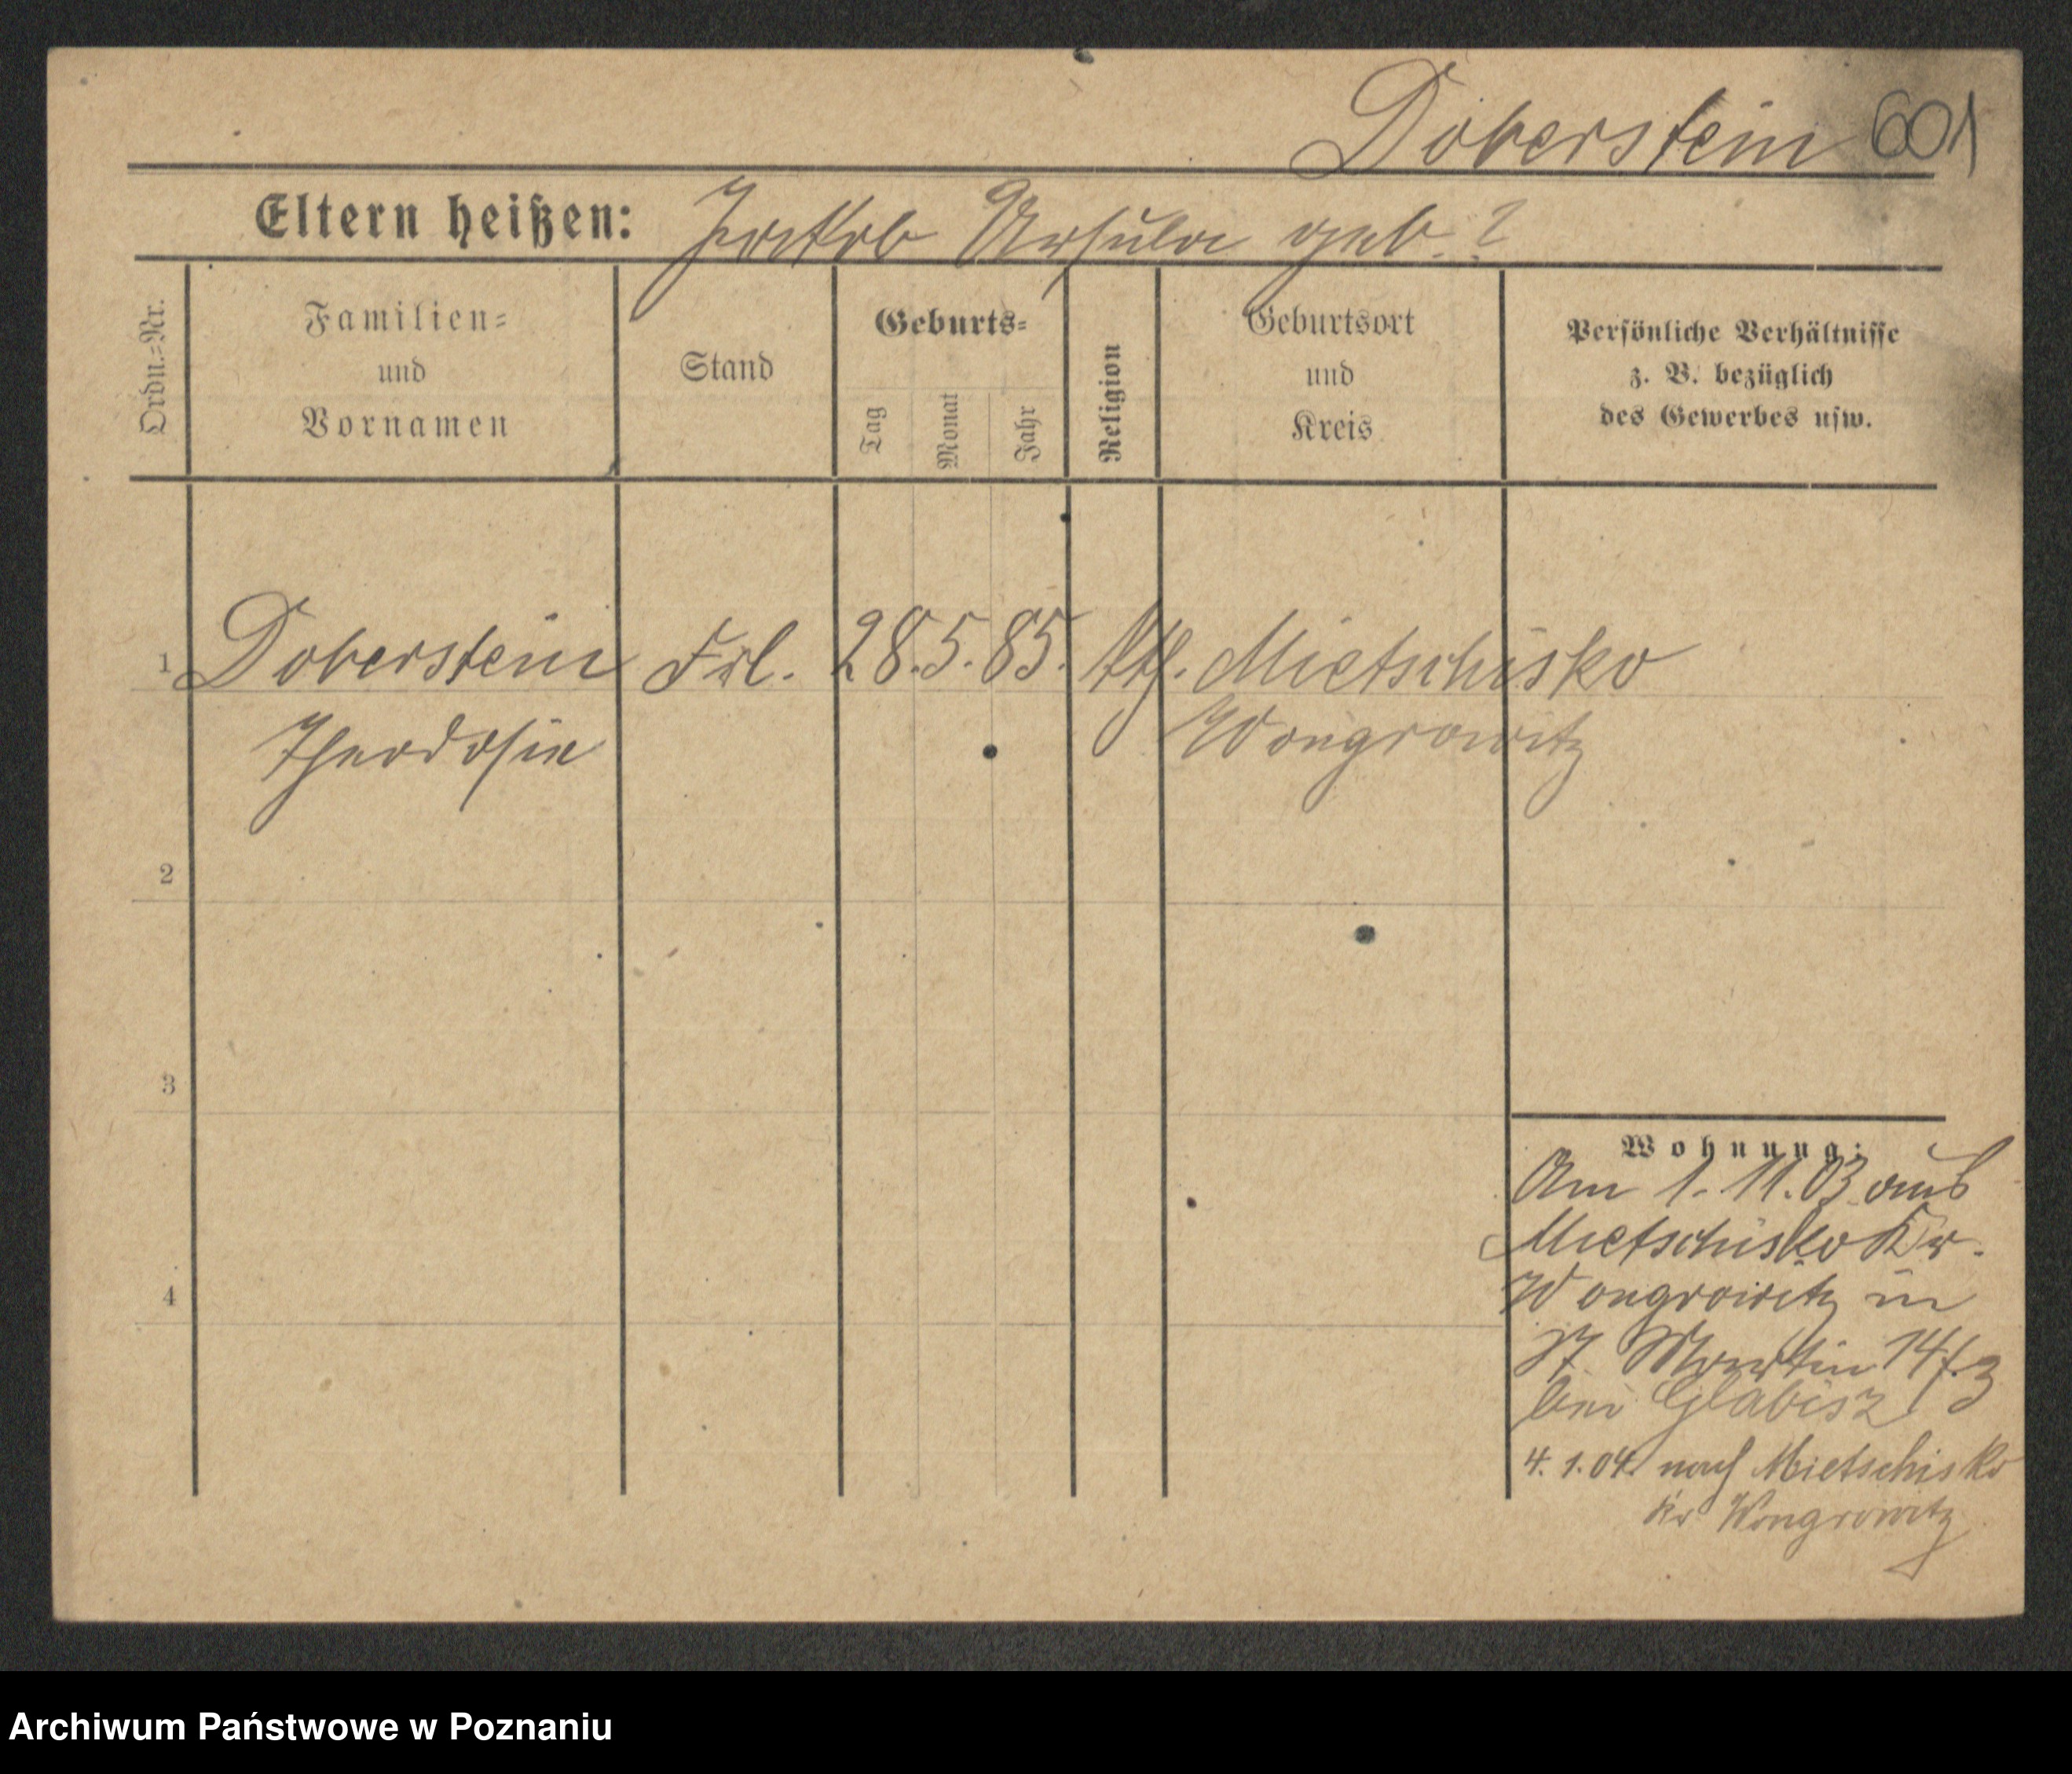 Doberstein 601
Eltern heißen: Jakob Ursula geb. ?
Ordn.=Nr.
Familien=
und
Vornamen
Stand
Geburts=
Tag
Monat
Jahr
Religion
Geburtsort
und
Kreis
Persönliche Verhältnisse
z. B. bezüglich
des Gewerbes usw.
1 Doberstein Frl. 28. 5. 85. kth. Mietschisko
Theodosie Wongrowitz
2
3
4
Wohnung:
Am 1. 11. 03 aus
Mietschisko Kr.
Wongrowitz in
St. Martin 14
bei Glabisz
4. 1. 04. nach Mietschisko
Kr Wongrowitz
Archiwum Państwowe w Poznaniu